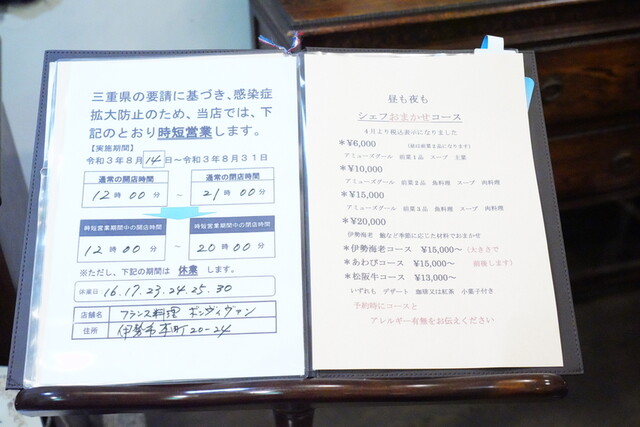 三重県の要請に基づき、感染症
拡大防止のため、当店では、下
記のとおり時短営業します。
【実施期間】
令和3年8月14日～令和3年8月31日
通常の開店時間
通常の閉店時間
12時00分
～
21時00分
時短営業期間中の開店時間
時短営業期間中の閉店時間
12時00分
～
20時00分
※ただし、下記の期間は 休業 します。
休業日 16.17.23.24.25.30
店舗名 フランス料理 ボンヴィヴァン
住所 伊勢市本町20-24
昼も夜も
シェフおまかせコース
4月より税込表示になりました
＊¥6,000
アミューズグール 前菜1品 スープ 主菜
＊¥10,000
アミューズグール 前菜2品 魚料理 スープ 肉料理
＊¥15,000
アミューズグール 前菜3品 魚料理 スープ 肉料理
＊¥20,000
伊勢海老 鮑など季節に応じた材料でおまかせ
＊伊勢海老コース ¥15,000～ (大きさで
＊あわびコース ¥15,000～ 前後します)
＊松阪牛コース ¥13,000～
いずれも デザート 珈琲又は紅茶 小菓子付き
予約時にコースと
アレルギー有無をお伝えください